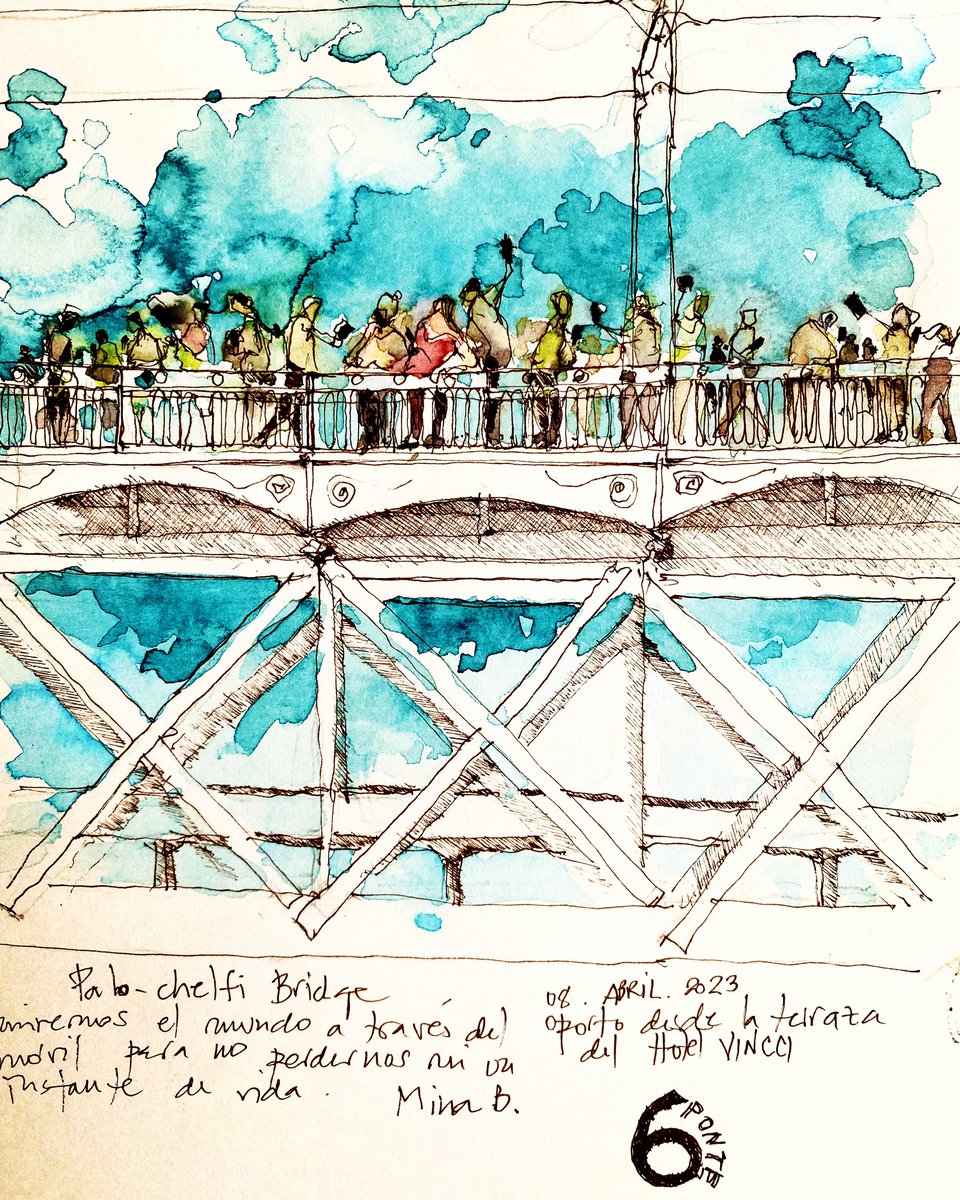 Palo-chelfi Bridge
miremos el mundo a través del
móvil para no perdernos ni un
instante de vida.
Mina B.
08. ABRIL. 2023
oporto desde la terraza
del Hotel VINCCI
6 PONTE